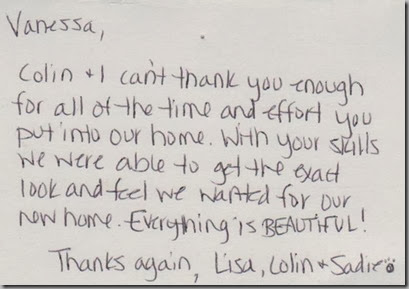 Vanessa,
Colin + I can't thank you enough
for all of the time and effort you
put into our home. With your skills
we were able to get the exact
look and feel we wanted for our
new home. Everything is BEAUTIFUL!
Thanks again, Lisa, Colin + Sadie